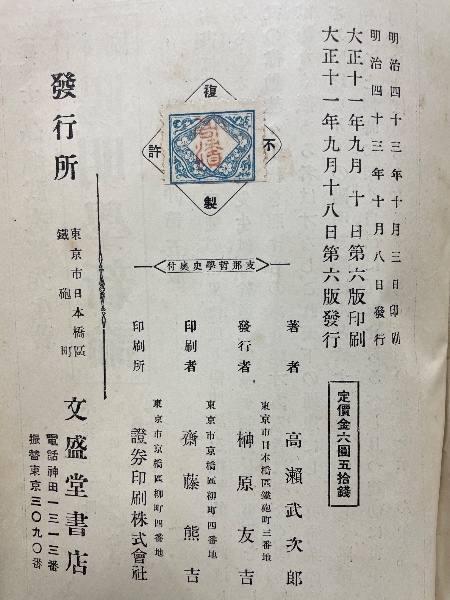 明治四十三年十月三日印刷
明治四十三年十月八日發行
大正十一年九月十日第六版印刷
大正十一年九月十八日第六版發行
定價金六圓五拾錢
複製
不許
支那哲學史奧付
著者 高瀨武次郎
東京市日本橋區鐵砲町三番地
發行者 榊原友吉
東京市京橋區柳町四番地
印刷者 齋藤熊吉
東京市京橋區柳町四番地
印刷所 證券印刷株式會社
發行所
東京市日本橋區
鐵砲町
文盛堂書店
電話神田一三一三番
振替東京三〇九〇番